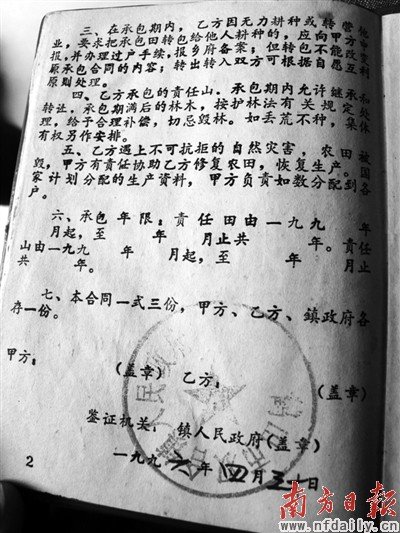 三、在承包期内，乙方因无力耕种或转营他
业，要求把承包田转包给他人耕种的，应向甲方申
报，并办理过户手续，报乡府备案；但转包不能改变
原承包合同的内容；转出转入双方可根据自愿互利
原则处理。
四、乙方承包的责任山。承包期内允许继承和
转让，承包期满后的林木，按护林法有关规定处
理，给予合理补偿，切忌毁林。如丢荒不种，集体
有权另作安排。
五、乙方遇上不可抗拒的自然灾害，农田被
毁，甲方有责任协助乙方修复农田，恢复生产。国
家计划分配的生产资料，甲方负责如数分配到各
户。
六、承包年限：责任田由一九九 年
月起，至 年 月止共 年。责任
山由一九九 年 月起，至 年 月止
共 年。
七、本合同一式三份，甲方、乙方、鎮政府各
存一份。
甲方： (盖章) 乙方： (盖章)
鉴证机关： 镇人民政府(盖章)
一九九六年四月三十日
2
南方日报
www.nfdaily.cn